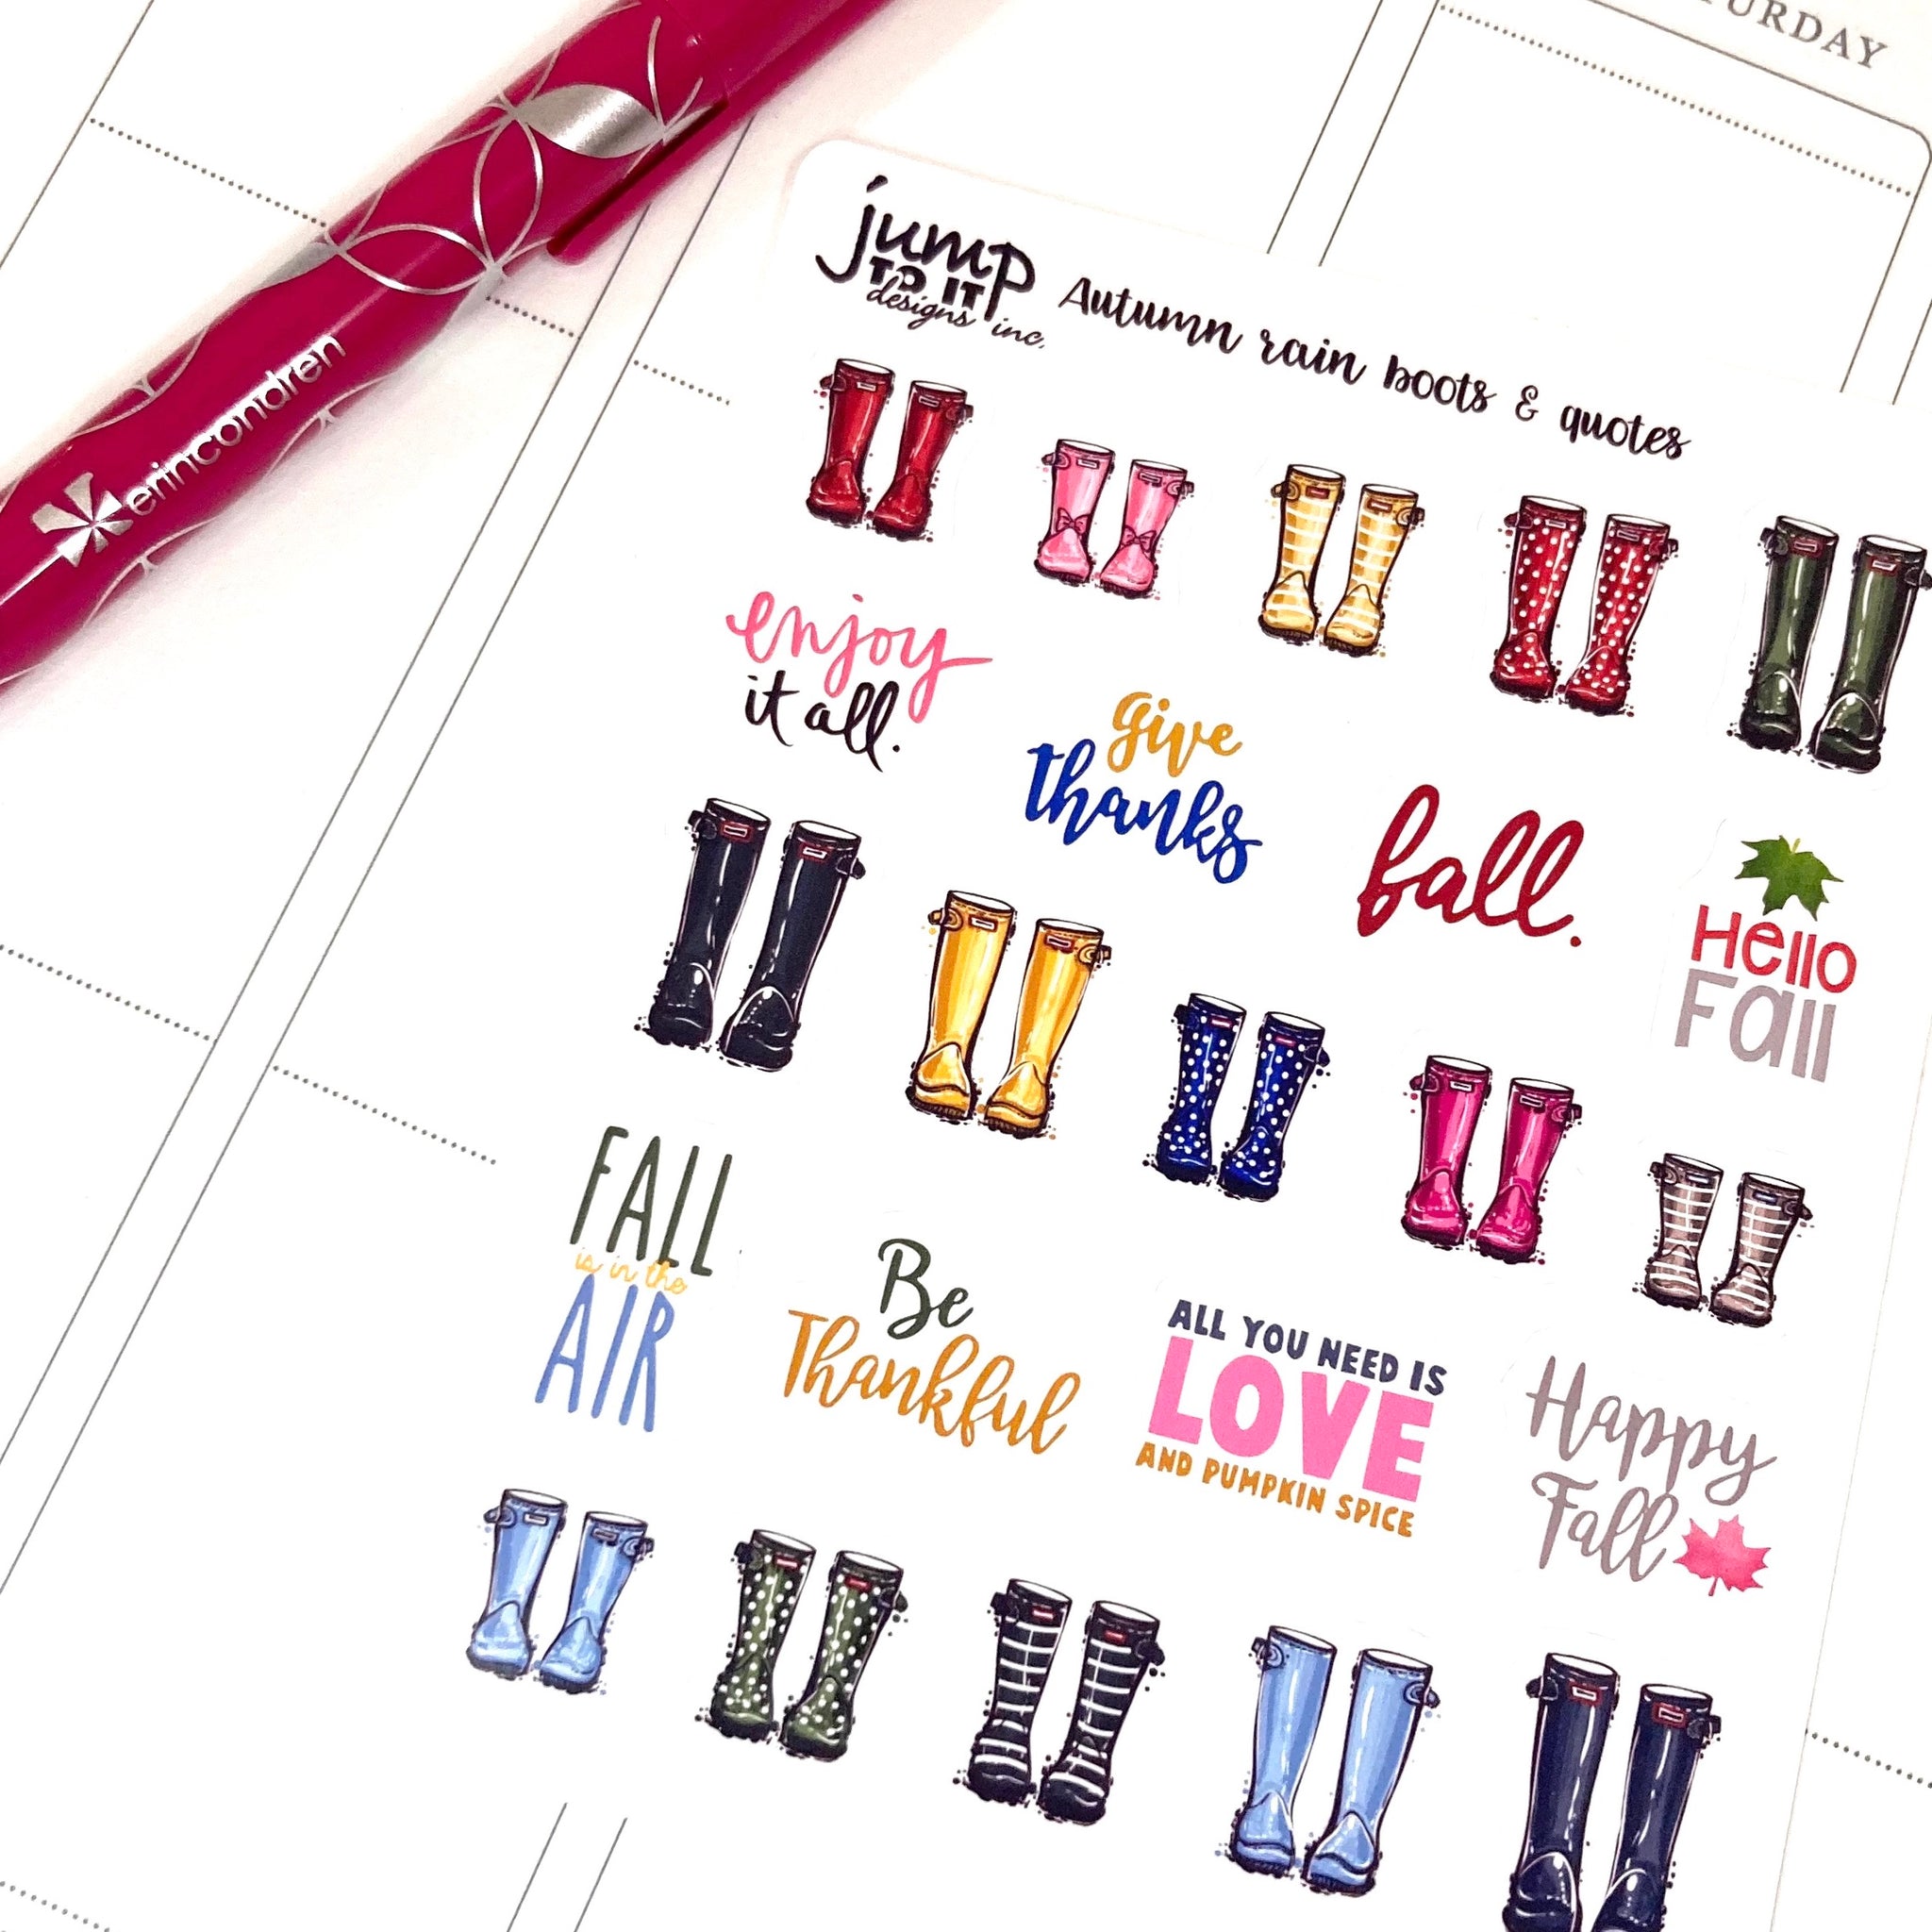 TURDAY
erincondren
jump
TO IT
designs inc.
Autumn rain boots & quotes
enjoy
it all.
give
thanks
fall.
Hello
Fall
FALL
is in the
AIR
Be
Thankful
ALL YOU NEED IS
LOVE
AND PUMPKIN SPICE
Happy
Fall